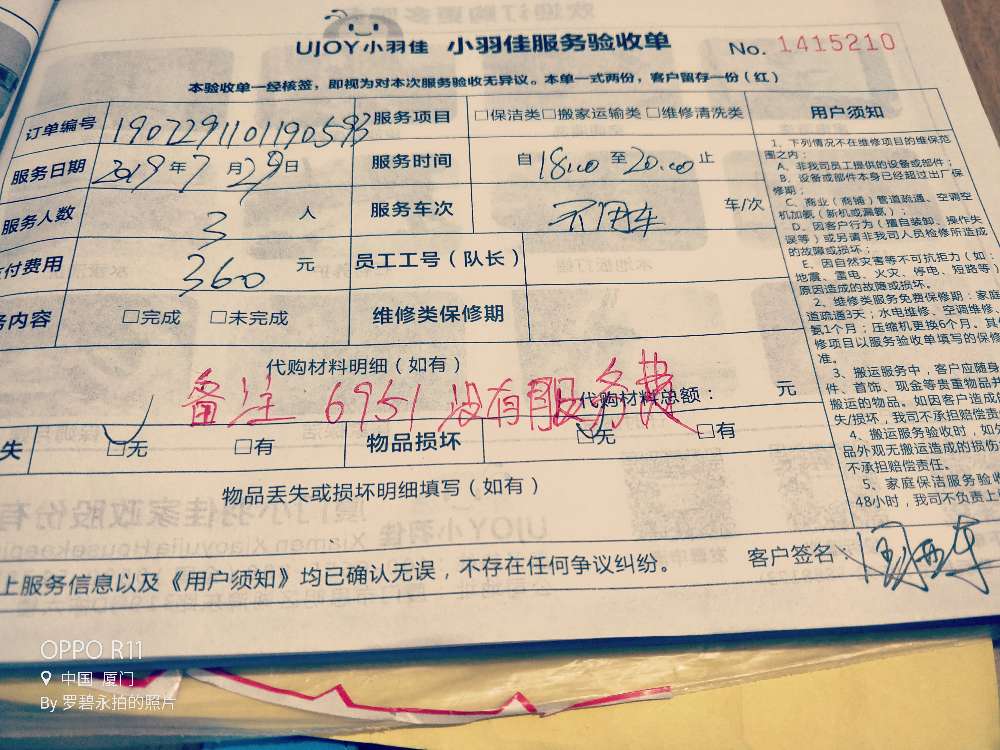 UJOY小羽佳 小羽佳服务验收单 No. 1415210
本验收单一经核签，即视为对本次服务验收无异议。本单一式两份，客户留存一份（红）
订单编号 1907291101190593 服务项目 □保洁类□搬家运输类 □维修清洗类
服务日期 2019 年 7 月 29 日 服务时间 自 18:00 至 20:00 止
服务人数 3 人 服务车次 不用车 车/次
付费用 360 元 员工工号（队长）
务内容 □完成 □未完成 维修类保修期
代购材料明细（如有）
备注 6951 没有服务费
代购材料总额： 元
失 □无 □有 物品损坏 □无 □有
物品丢失或损坏明细填写（如有）
上服务信息以及《用户须知》均已确认无误，不存在任何争议纠纷。 客户签名：
用户须知
1、下列情况不在维修项目的维保范
围之内：
A、非我司员工提供的设备或部件；
B、设备或部件本身已经超过出厂保
修期；
C、商业（商铺）管道疏通、空调空
机加氨（新机或漏氨）；
D、因客户行为（擅自装卸、操作失
误等）或另请非我司人员检修所造成
的故障或损坏；
E、因自然灾害等不可抗拒力（如：
地震、雷电、火灾、停电、短路等）
原因造成的故障或损坏。
2、维修类服务免费保修期：家庭
道疏通3天；水电维修、空调维修、
氨1个月；压缩机更换6个月。其
修项目以服务验收单填写的保修
准。
3、搬运服务中，客户应随身
件、首饰、现金等贵重物品并
搬运的物品。如因客户造成的
失/损坏，我司不承担赔偿责
4、搬运服务验收时，如外
品外观无搬运造成的损伤
不承担赔偿责任。
5、家庭保洁服务验收
48小时，我司不负责上
OPPO R11
中国 厦门
By 罗碧永拍的照片